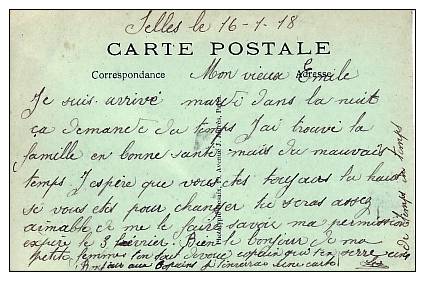 Selles le 16-1-18
CARTE POSTALE
Correspondance
Adresse
Mon vieux Emile
Je suis arrivé mardi dans la nuit
ça demande du temps J'ai trouvé la
famille en bonne santé mais du mauvais
temps J'espère que vous etes toujours la haut
si vous etes pour changer tu seras assez
aimable de me le faire savoir ma permission
expire le 3 fevrier Bien le bonjour de ma
petite femme ton copain qui t'en serre cinq
Bonjour aux copains
de temps en temps